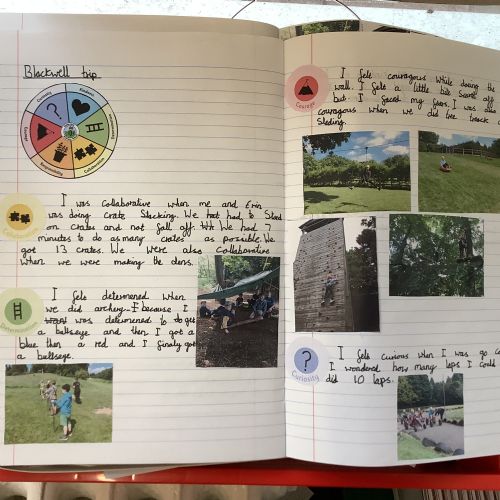 Blackwell trip
Curiosity
Kindness
Determination
Collaboration
Responsibility
Courage
I was collaborative when me and Erin
was doing crate Stacking. We hat had to Stand
on crates and not fall off. We had 7
minutes to do as many crates as possible. We
got 13 crates. We were also collaborative
when we were making the dens.
Collaboration
I felt determened when
we did archery. I because I
want was determened to do get
a bullseye and then I got a
blue then a red and I finaly got
a bullseye.
Determination
I felt couragous while doing the
wall. I felt a little bit scared
but I faced my fears. I was also
couragous when we did
Sleding.
Courage
I felt curious when I was go
I wondered how many laps I could
did 10 laps.
Curiosity